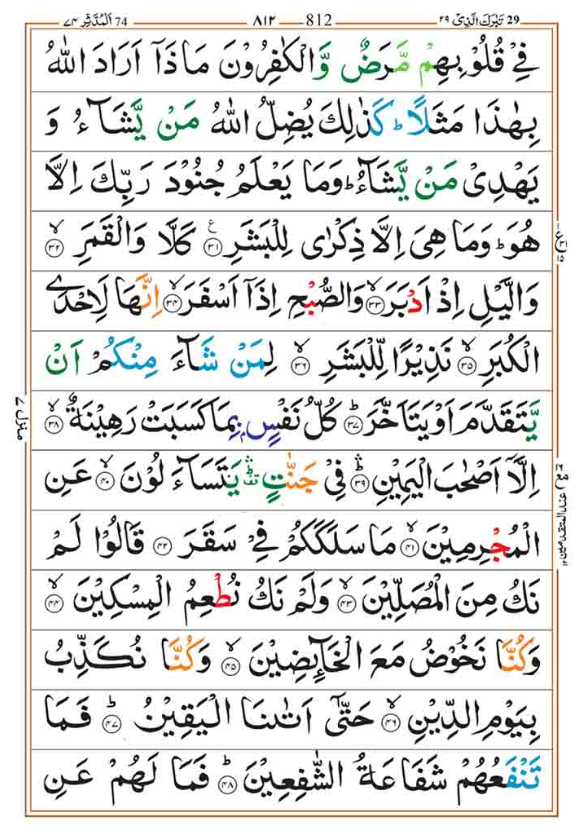 29 تَبٰرَكَ الَّذِىْ ٢٩ 812 ٨١٢ 74 اَلْمُدَّثِّر ٧٤
فِىْ قُلُوْبِهِمْ مَّرَضٌ وَّالْكٰفِرُوْنَ مَاذَاۤ اَرَادَ اللّٰهُ
بِهٰذَا مَثَلًا ؕ كَذٰلِكَ يُضِلُّ اللّٰهُ مَنْ يَّشَآءُ وَ
يَهْدِىْ مَنْ يَّشَآءُ ؕ وَمَا يَعْلَمُ جُنُوْدَ رَبِّكَ اِلَّا
هُوَ ؕ وَمَا هِىَ اِلَّا ذِكْرٰى لِلْبَشَرِ ۝٣١ كَلَّا وَالْقَمَرِ ۙ۝٣٢
وَالَّيْلِ اِذْ اَدْبَرَ ۙ۝٣٣ وَالصُّبْحِ اِذَاۤ اَسْفَرَ ۙ۝٣٤ اِنَّهَا لَاِحْدَى
الْكُبَرِ ۙ۝٣٥ نَذِيْرًا لِّلْبَشَرِ ۙ۝٣٦ لِمَنْ شَآءَ مِنْكُمْ اَنْ
يَّتَقَدَّمَ اَوْ يَتَاَخَّرَ ؕ۝٣٧ كُلُّ نَفْسٍۢ بِمَا كَسَبَتْ رَهِيْنَةٌ ۙ۝٣٨
اِلَّاۤ اَصْحٰبَ الْيَمِيْنِ ؕ۝٣٩ فِىْ جَنّٰتٍ ۛ يَتَسَآءَلُوْنَ ۙ۝٤٠ عَنِ
الْمُجْرِمِيْنَ ۙ۝٤١ مَا سَلَكَكُمْ فِىْ سَقَرَ ۝٤٢ قَالُوْا لَمْ
نَكُ مِنَ الْمُصَلِّيْنَ ۙ۝٤٣ وَلَمْ نَكُ نُطْعِمُ الْمِسْكِيْنَ ۙ۝٤٤
وَكُنَّا نَخُوْضُ مَعَ الْخَآئِضِيْنَ ۙ۝٤٥ وَكُنَّا نُكَذِّبُ
بِيَوْمِ الدِّيْنِ ۙ۝٤٦ حَتّٰۤى اَتٰٮنَا الْيَقِيْنُ ؕ۝٤٧ فَمَا
تَنْفَعُهُمْ شَفَاعَةُ الشّٰفِعِيْنَ ؕ۝٤٨ فَمَا لَهُمْ عَنِ